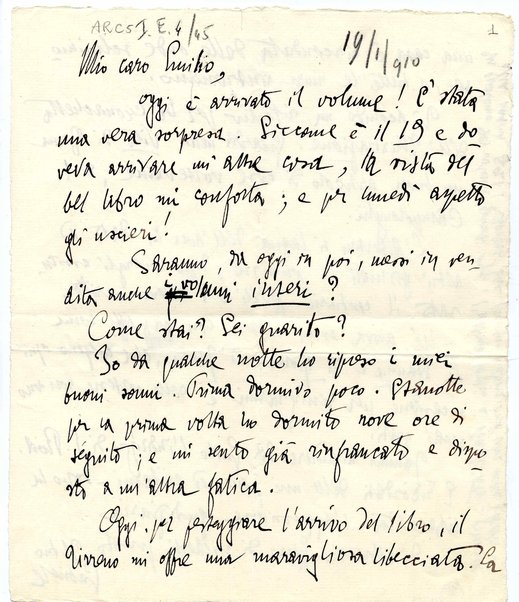 ARCS I. E. 4/45
1
19/1/910
Mio caro Emilio,
oggi è arrivato il volume! C'è stata
una vera sorpresa. Siccome è il 19 e do-
veva arrivare un'altra cosa, la vista del
bel libro mi conforta; e per lunedì aspetto
gli uscieri!
Saranno, da oggi in poi, messi in ven-
dita anche i volumi interi?
Come stai? Sei guarito?
Io da qualche notte ho ripreso i miei
buoni sonni. Prima dormivo poco. Stanotte
per la prima volta ho dormito nove ore di
seguito; e mi sento già rinfrancato e dispo-
sto a un'altra fatica.
Oggi, per festeggiare l'arrivo del libro, il
Tirreno mi offre una maravigliosa libecciata. La